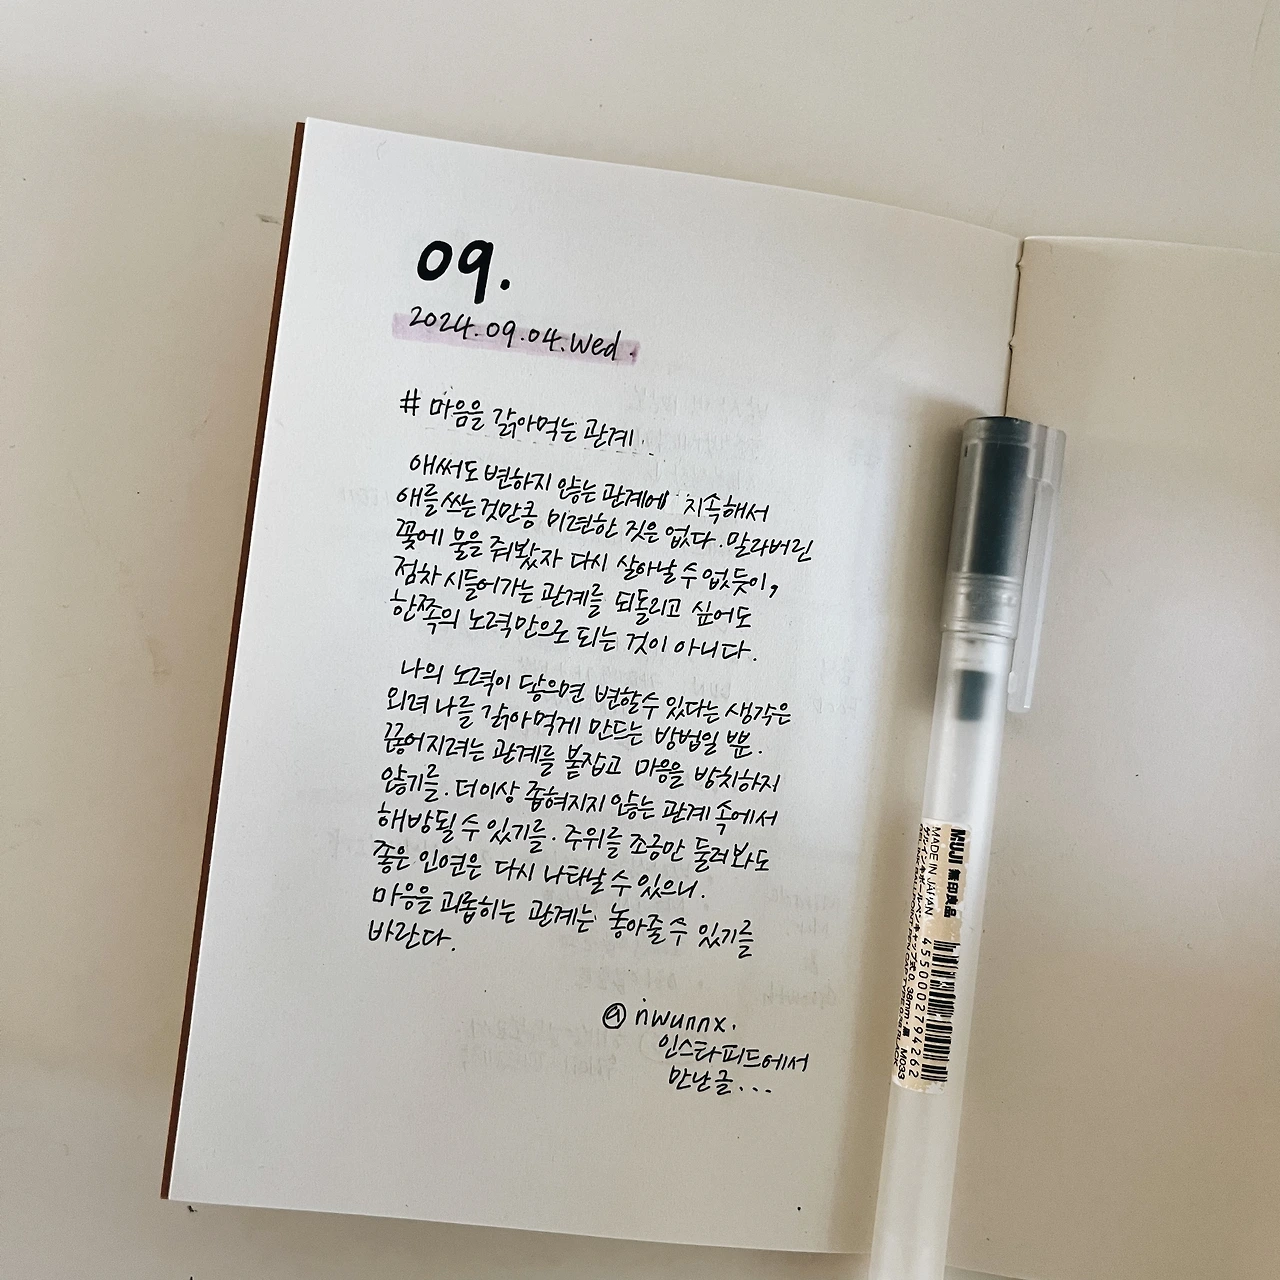 09.
2024.09.04.Wed.
# 마음을 갉아먹는 관계.
애써도 변하지 않는 관계에 지속해서
애를 쓰는 것만큼 미련한 짓은 없다. 말라버린
꽃에 물을 줘봤자 다시 살아날 수 없듯이,
점차 시들어가는 관계를 되돌리고 싶어도
한쪽의 노력만으로 되는 것이 아니다.
나의 노력이 닿으면 변할 수 있다는 생각은
외려 나를 갉아먹게 만드는 방법일 뿐.
끊어지려는 관계를 붙잡고 마음을 방치하지
않기를. 더이상 좁혀지지 않는 관계 속에서
해방될 수 있기를. 주위를 조금만 둘러봐도
좋은 인연은 다시 나타날 수 있으니.
마음을 괴롭히는 관계는 놓아줄 수 있기를
바란다.
@nwunnx.
인스타피드에서
만난글...
MUJI 無印良品
MADE IN JAPAN
4550002794262
M033